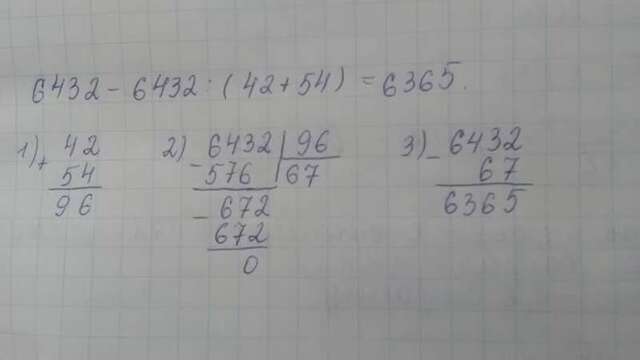 6432 - 6432 : (42 + 54) = 6365.
1) + 42
54
96
2) - 6432 | 96
576 | 67
- 672
672
0
3) - 6432
67
6365